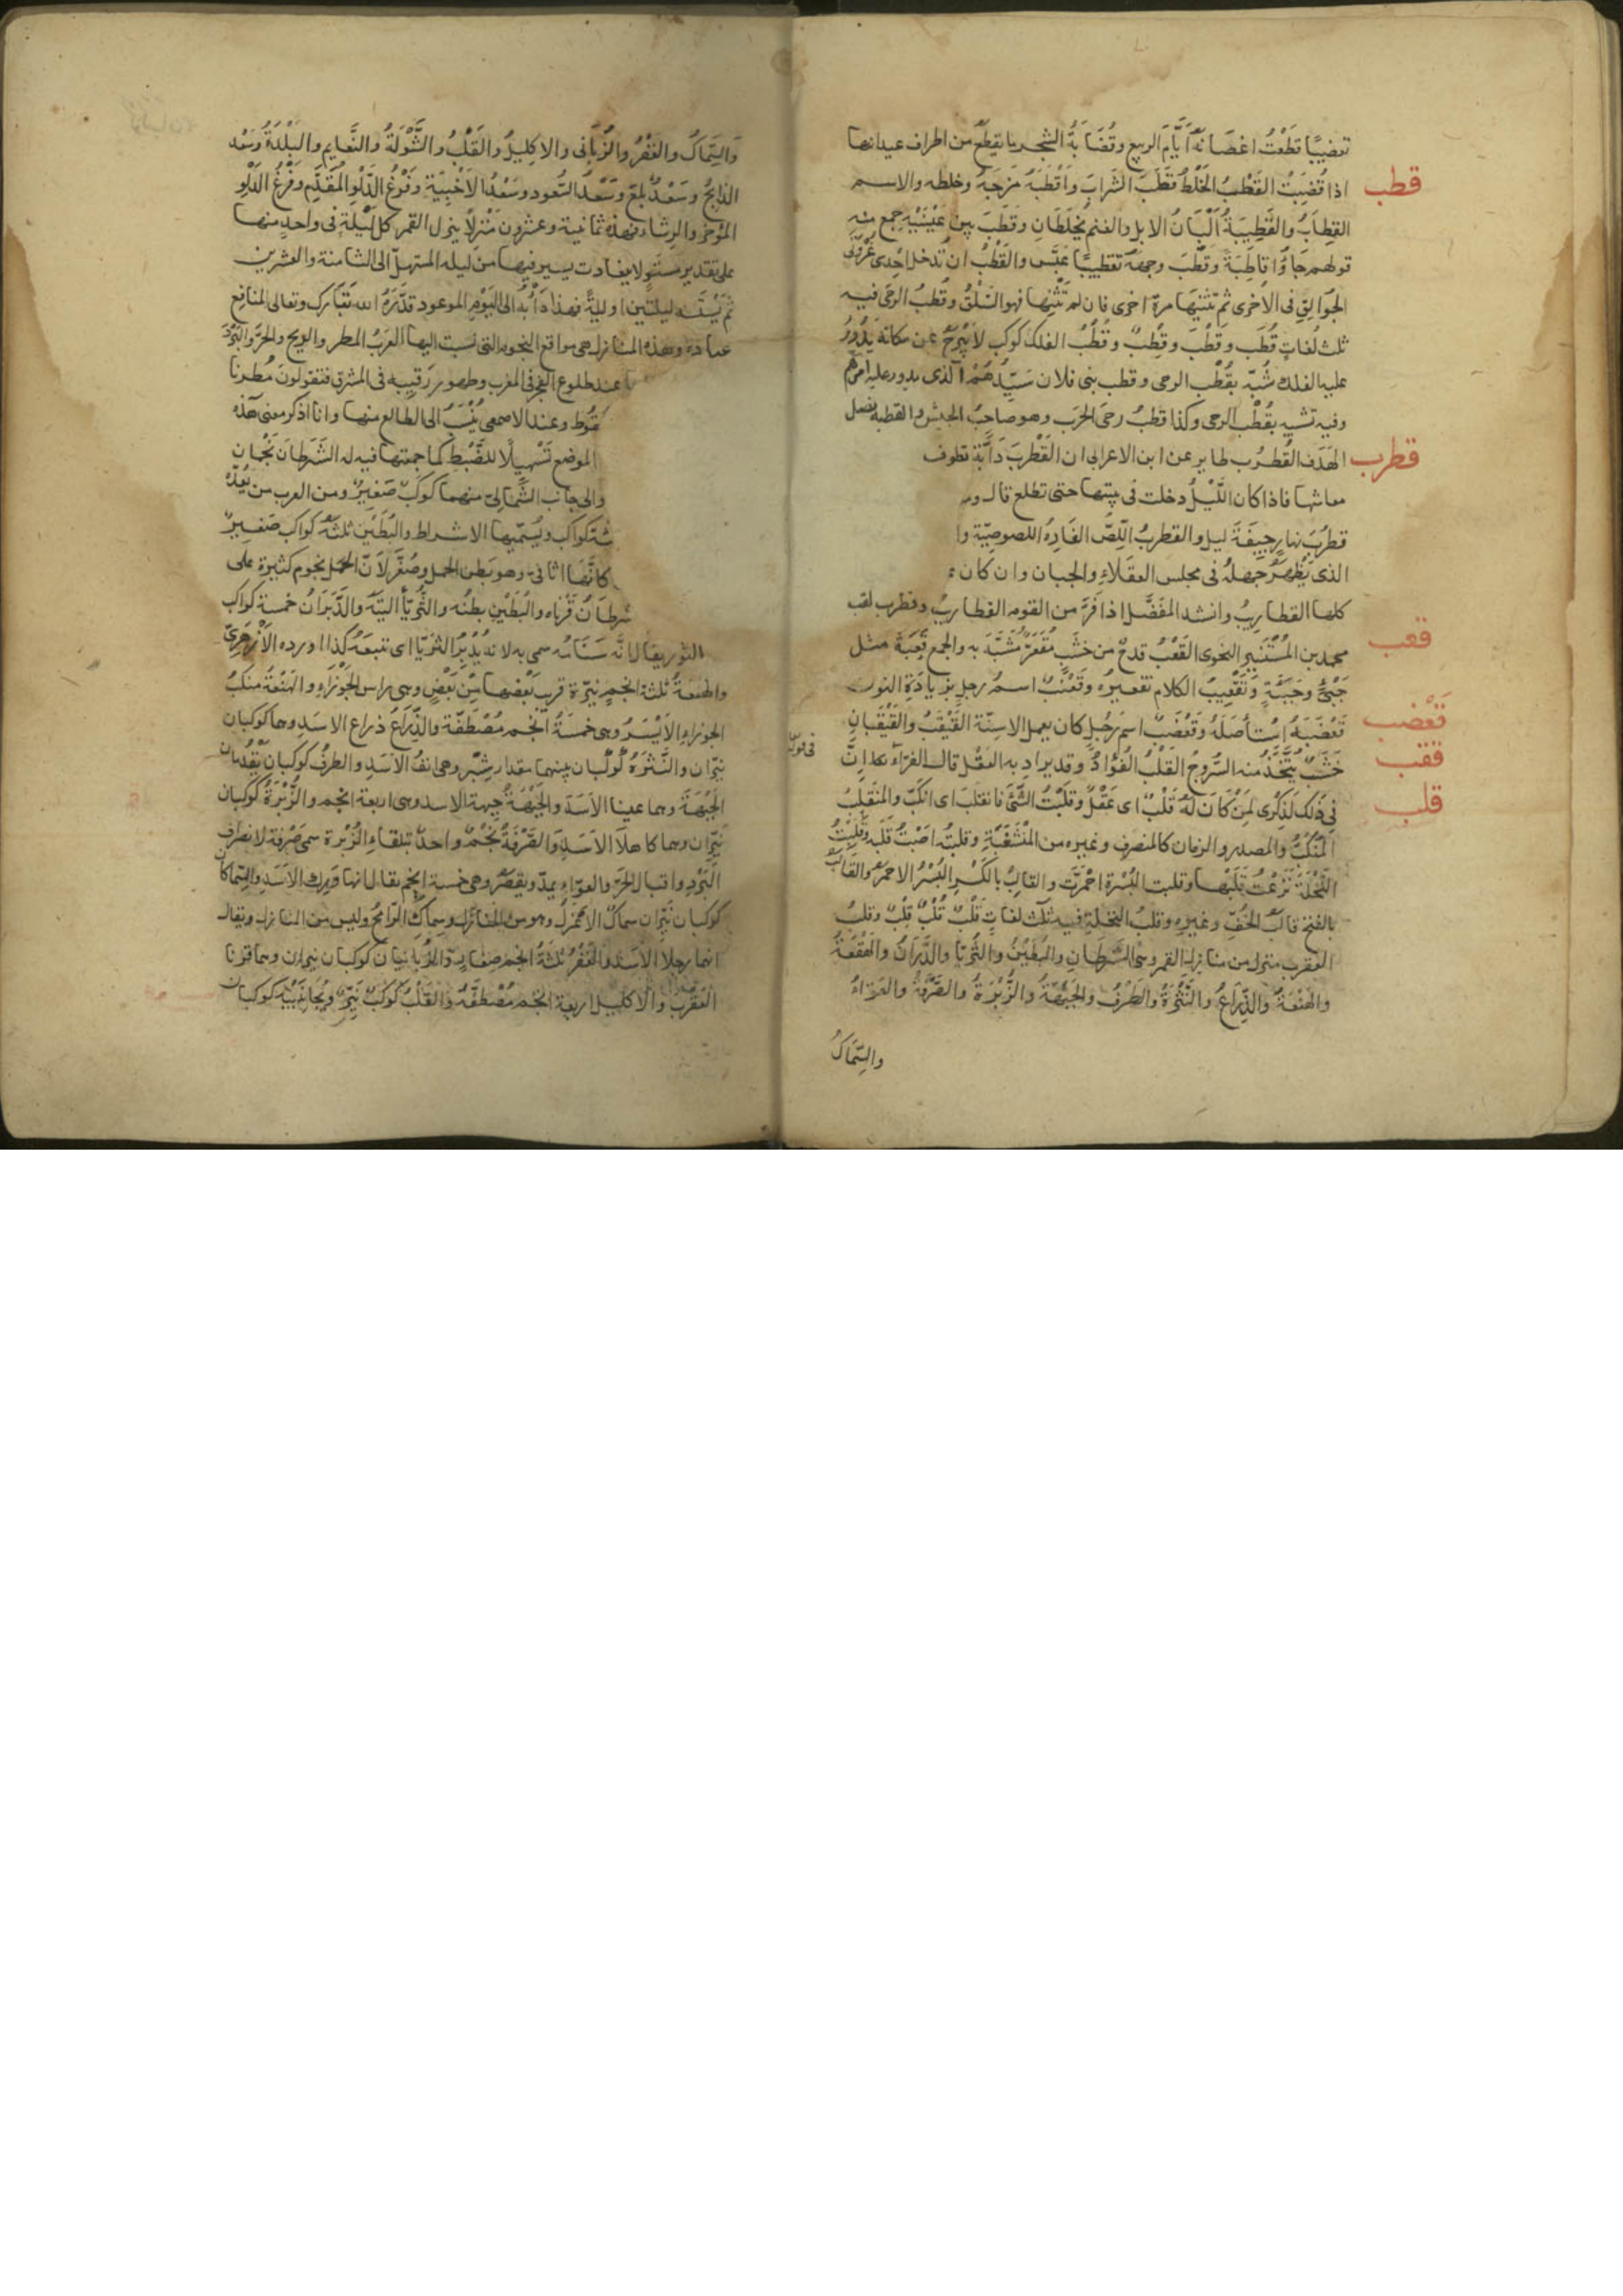 تقضيبًا قطعتُ اغصانه أيّام الربيع وقُضَابَةُ الشجر ما يقطع من اطراف عيدانها
قطب
اذا قُضِبَتْ القَطْبُ الخَلْطُ قَطَبَ الشَرابَ وأَقْطَبَهُ مَزَجَهُ وخلطه والاسم
القِطَابُ والقَطِيبَةُ أَلْبَانُ الابل والغنم يُخلَطَانِ وَقَطَبَ بين عَيْنَيْهِ جمع منه
قولهم جَاؤُا قاطِبَةً وقَطَّبَ وجهَهُ تقطيبًا عبَّس والقَطْبُ ان تُدخل اِحْدى عُرْوَتَى
الجُوَالِقِ فى الأخرى ثم تَثنيَهَا مرةً اخرى فان لم تَثْنِها فهو السَلْقُ وقُطبُ الرحى فيه
ثلث لُغاتٍ قُطْب وقَطْب وقِطْبٌ وقُطْبُ الفلك كوكب لا يَبْرَحُ عن مكانه يَدُورُ
عليه الفلك شُبّه بقُطْب الرحى وقطب بنى فلان سَيّدُهُمْ الذى يدور عليه امرهم
وفيه تشبيه بقُطْب الرحى وكذا قطبُ رحَى الحَرب وهو صاحبُ الجيش والقطبة نصل
قطرب
الهَدَف القُطْرُب طاير عن ابن الاعرابى ان القُطْربَ دَابَّة تطوف
معاشها فاذا كان اللَّيْلُ دخلت فى بيتها حتى تطلع قال
قُطْرُبَ نهارٍ جِيفَةَ ليل والقطربُ اللِّصُّ الفَارِهُ اللصوصيّة وا
الذى يُظهِرُ جهلهُ فى مجلس العقلاءِ والجبان وان كان
كلها القطاريبُ وانشد المفَضَّل اذا فَرَّ من القوم القطاريبُ وقطرب لقب
قعب
محمد بن المُسْتَنِير النحوى القَعْبُ قدحٌ من خشَبٍ مُقَعَّرٌ مُشَبَّهٌ به والجمع قِعَبَةٌ مثل
جَبْءٍ وجِبَئَةٍ وتَقْعِيبُ الكلام تقعيره وقَعْنَبٌ اسمُ رجلٍ بزيادَةِ النون
قَعْضب
قَعْضَبَهُ استأصَلَهُ وقَعْضَبٌ اسم رَجُلٍ كان يعمل الاسِنَّة القَيْقَبُ والقَيْقَبانِ
ققب
خَشَبٌ يُتَّخَذُ منه السُّروجُ القَلْبُ الفُؤادُ وقد يراد به العقل قال الفرّاء هذا إنَّ
قلب
فى ذٰلك لَذِكْرى لِمَنْ كَانَ لَهُ قَلْبٌ اى عَقْلٌ وقَلَبْتُ الشَّىَ فانقلب اى انكبّ والمُنقلَبُ
المُنكَبُّ والمصدر والزمان كالمنصرف وغيره من المُنْشَعَبَةِ وقلبتُه اصَبْتُ قَلبَه وقلبْتُ
النَّخْلَةَ نَزَعْتُ قَلْبَها وقلبت البُسْرة احْمَرَّت والقالِبُ بالكَسْرِ البُسْرُ الاحمرُ والقَالَبُ
بالفتح قالَبُ الخُفِّ وغيره وقلبُ النخلة فيه ثلث لغاتٍ قَلْبٌ قُلْبٌ قِلْبٌ وقلبُ
العقرب منزل من منازل القمر وهى الشَّرَطانِ والبُطَيْنُ والثُّرَيّا والدَّبَرَانُ والهَقْعَةُ
والهَنْعَةُ والذِّرَاعُ والنَّثْرَةُ والطَرْفُ والجَبْهَةُ والزُّبْرَةُ والصَّرْفَةُ والعَوَّاءُ
والسِّمَاكُ
والسِّمَاكُ والغَفْرُ والزُّبَانَى والاكليلُ والقَلْبُ والشَّوْلَةُ والنَّعايم والبَلْدَةُ وسَعْد
الذابحُ وسَعْدُ بُلَعَ وسَعْدُ السُّعود وسَعْدُ الأخبِيَةِ وفَرْغُ الدَّلْوِ المُقدَّم وفَرْغُ الدَّلْوِ
المُؤخرُ والرِشاء وهذه ثمانية وعشرون منزلاً ينزل القمر كلّ ليْلَةٍ فى واحدٍ منها
على تقدير مستوٍ لا يتفاوت يسير فيها من ليله المستهلّ الى الثامنة والعشرين
ثم يَسْتَتر ليلتين او ليلةً فهذا دَأْبه الى اليَوْم الموعود قدّرَهُ الله تَبَارك وتعالى لمنافع
عباده وهذه المنازل هى مواقع النجوم التى نسبت اليها العَرَبُ المطر والريح والحَرّ والبَرْدَ
عند طلوع الفجر فى المغرب وظهور رَقيبه فى المشرق فتقولون مُطِرنا
سُقُوط وعند الاصمعى يُنْسَبُ الى الطالع منها وانا اذكر معنى هذه
الموضع تَسْهيلًا للضَّبْط كما جمعتها فيه له الشَّرَطان نَجْمانِ
والى جانب الشَّمالىّ منهما كوكبٌ صَغيرٌ ومن العرب من يُعدّه
ثة كواكب ويُسَمّيها الاشراط والبُطَيْن ثلثة كواكب صَغيرةٌ
كانّها اثافىّ وهو بَطن الحمل وصُغّر لانّ الحمَل نجوم كثيرة على
شَرَطانُ قَرْناه والبُطَيْن بطنُه والثُّرَيّا اليتُه والدَّبَرانُ خمسة كواكب
الثور يقال انّه سَنَامُه سمى به لانه يَدْبُرُ الثريّا اى تتبعَهُ كذا اورده الأزهرىّ
والهقعَةُ ثلثةُ انجُمٍ نيّرة قرب بَعْضها من بَعْضٍ وهى راس الجَوْزاءِ والهَنْعَةُ منكبُ
الجوزاءِ الأيْسَرُ وهى خمسَةُ انجُمٍ مُصْطَفّة والذِّراعُ ذراع الاسَد وهما كوكبان
نيّران والنَّثْرَةُ كوكبان بينهما مقدار شِبْر وهى انفُ الاسَدِ والطرفُ كوكبان يَقدُمان
الجَبْهَةَ وهما عينا الاسَدِ والجَبْهَةُ جبهة الاسد وهى اربعة انجم والزُّبْرةُ كوكبان
نيّران وهما كاهلا الاسَد والصَّرْفَةُ نَجْمٌ واحدٌ بتلقاءِ الزُّبرة سمى صَرْفة لانصراف
البَرْدِ واقبال الحَرّ والعوّاء يمدّ ويقصرُ وهى خمسة انجم يقال انها وَرِك الأسَد والسِّماكان
كوكبان نيّران سماكُ الاعْزَلُ وهو من المنازل وسِماك الرّامحُ وليس من المنازل ويقال
انهما رجلا الأسَد والغَفْرُ ثلثةُ انجم صغارٍ والزُّبانيان كوكبان نيران وهما قرنا
العَقْرَبِ والاكليل اربعة انجم مُصْطَفَّةٌ والقَلْبُ كوكَبٌ نَيِّرٌ وبجَانِبَيْه كوكبان